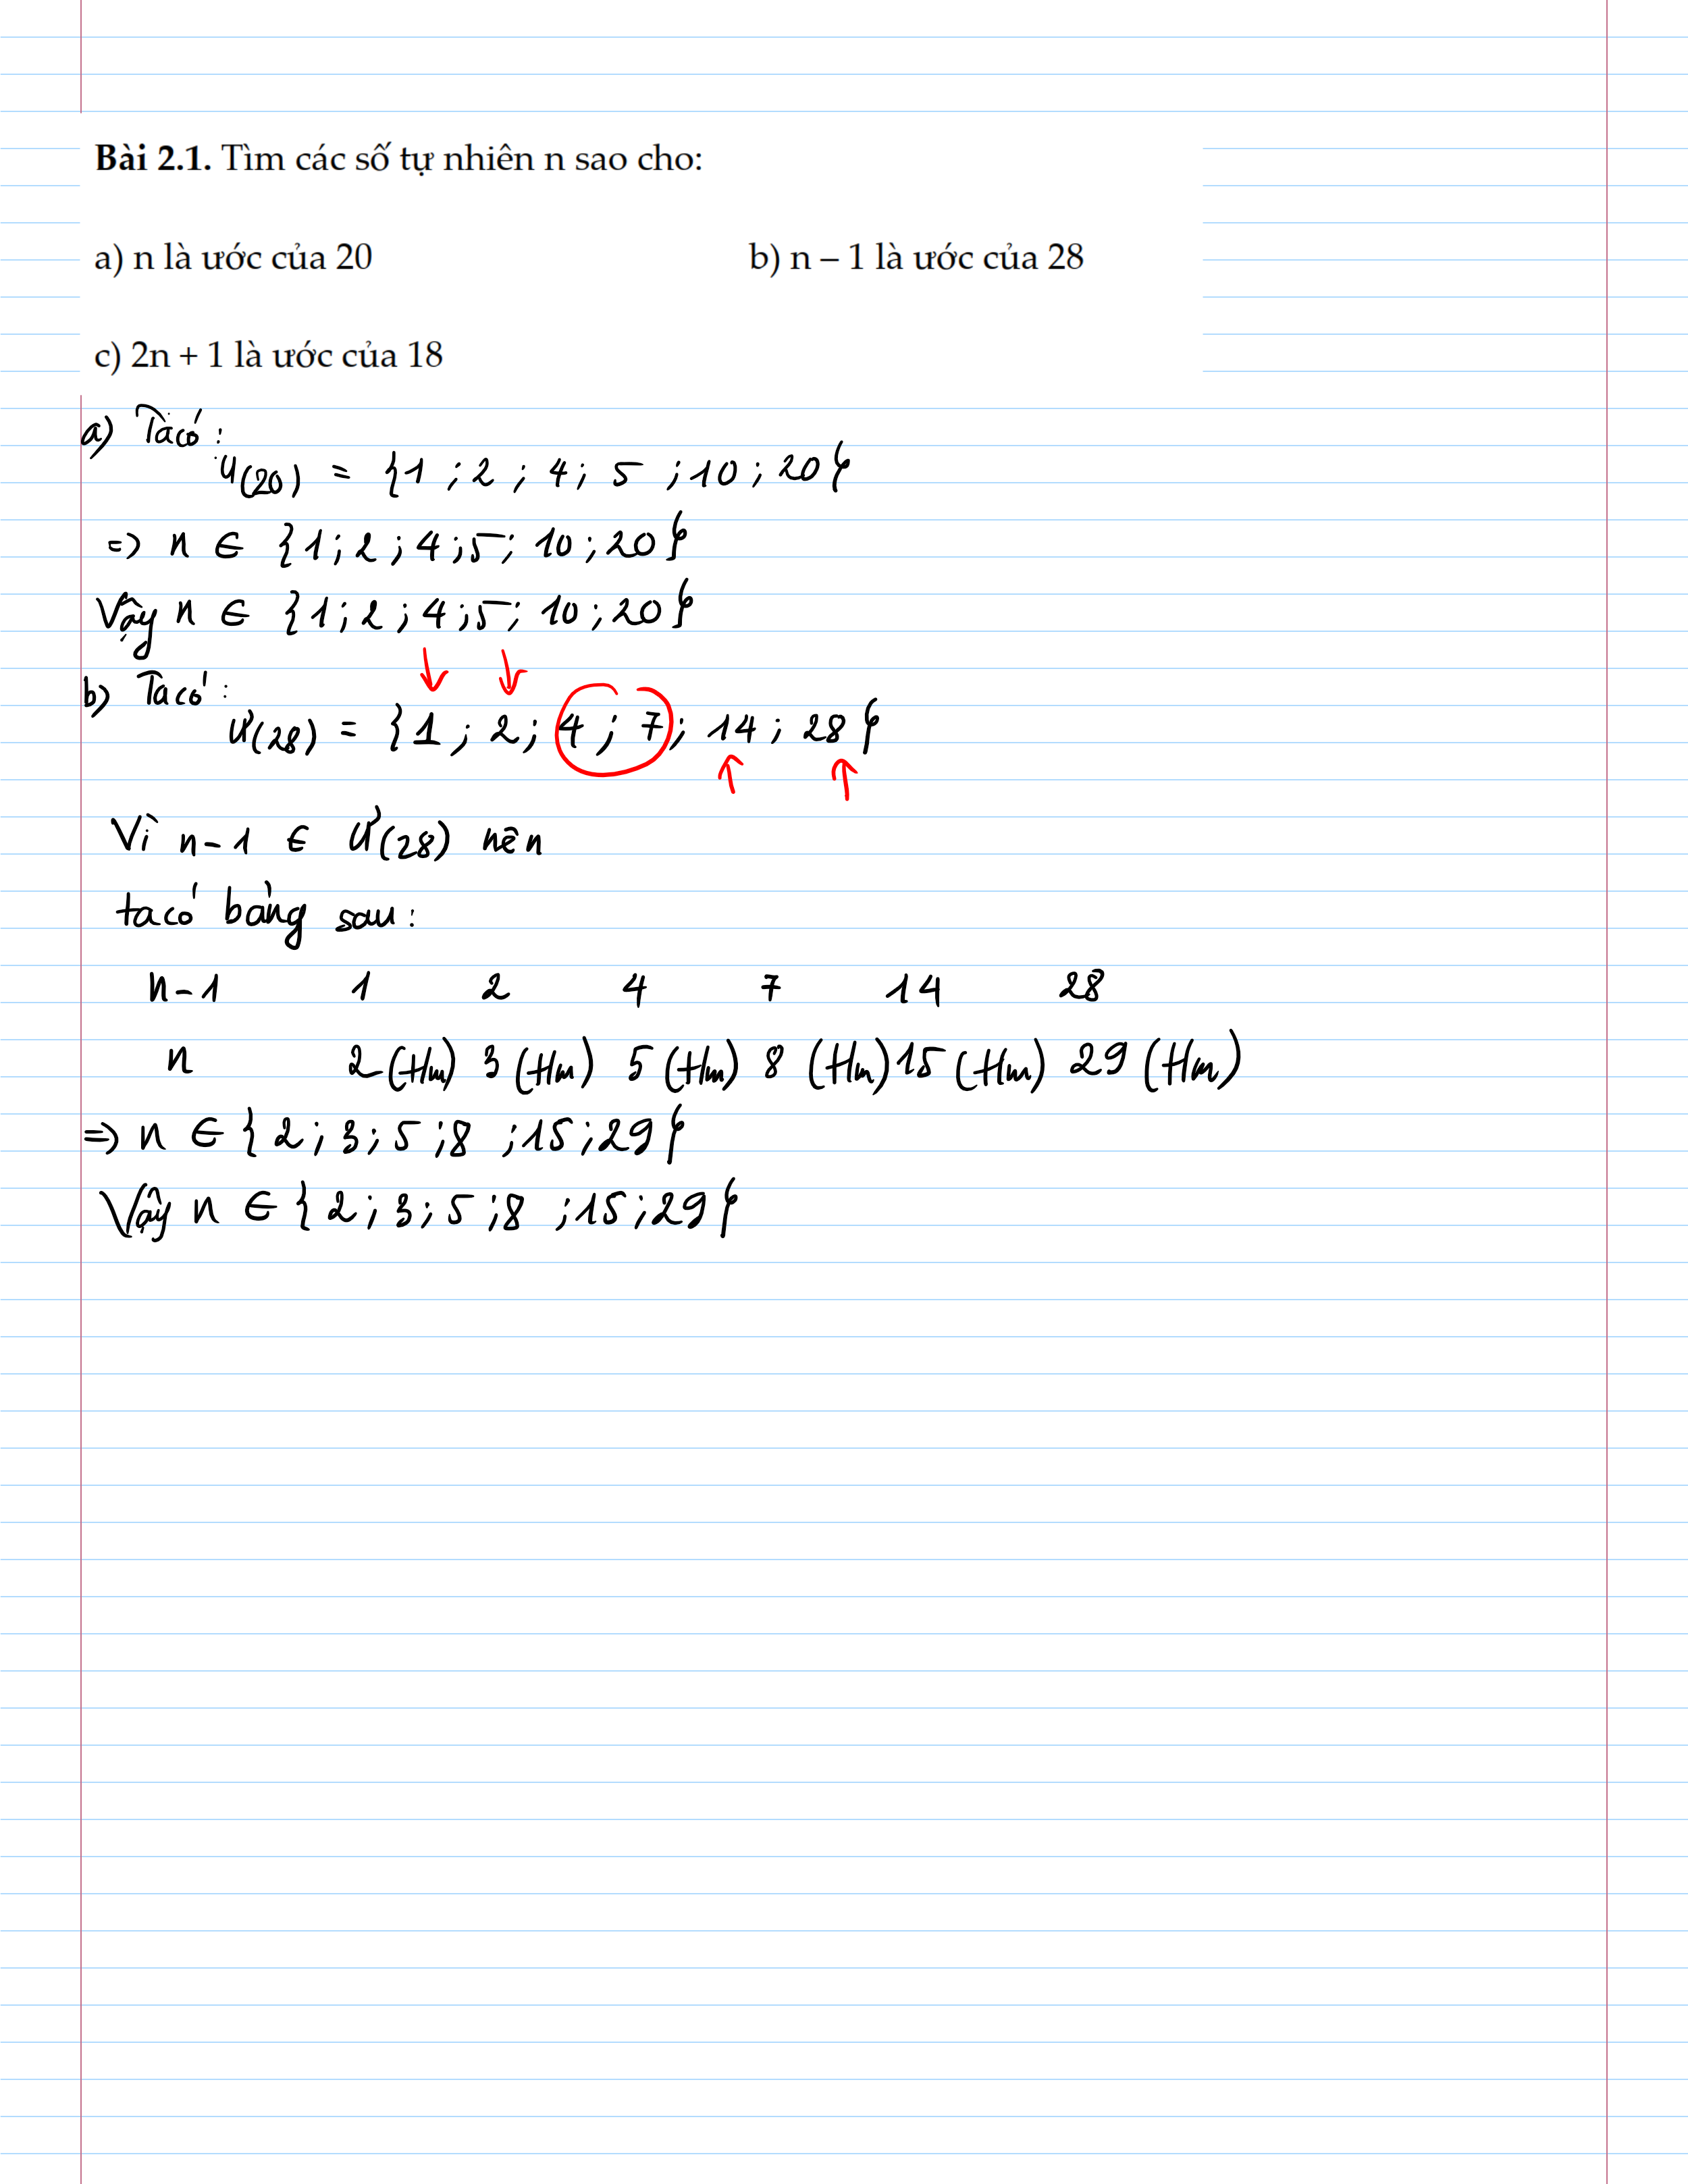 Bài 2.1. Tìm các số tự nhiên n sao cho:
a) n là ước của 20 b) n – 1 là ước của 28
c) 2n + 1 là ước của 18
a) Ta có:
Ư(20) = {1 ; 2 ; 4 ; 5 ; 10 ; 20}
=> n ∈ {1 ; 2 ; 4 ; 5 ; 10 ; 20}
Vậy n ∈ {1 ; 2 ; 4 ; 5 ; 10 ; 20}
b) Ta có:
Ư(28) = {1 ; 2 ; 4 ; 7 ; 14 ; 28}
Vì n-1 ∈ Ư(28) nên
ta có bảng sau:
n-1 1 2 4 7 14 28
n 2 (tm) 3 (tm) 5 (tm) 8 (tm) 15 (tm) 29 (tm)
=> n ∈ { 2 ; 3 ; 5 ; 8 ; 15 ; 29}
Vậy n ∈ { 2 ; 3 ; 5 ; 8 ; 15 ; 29}